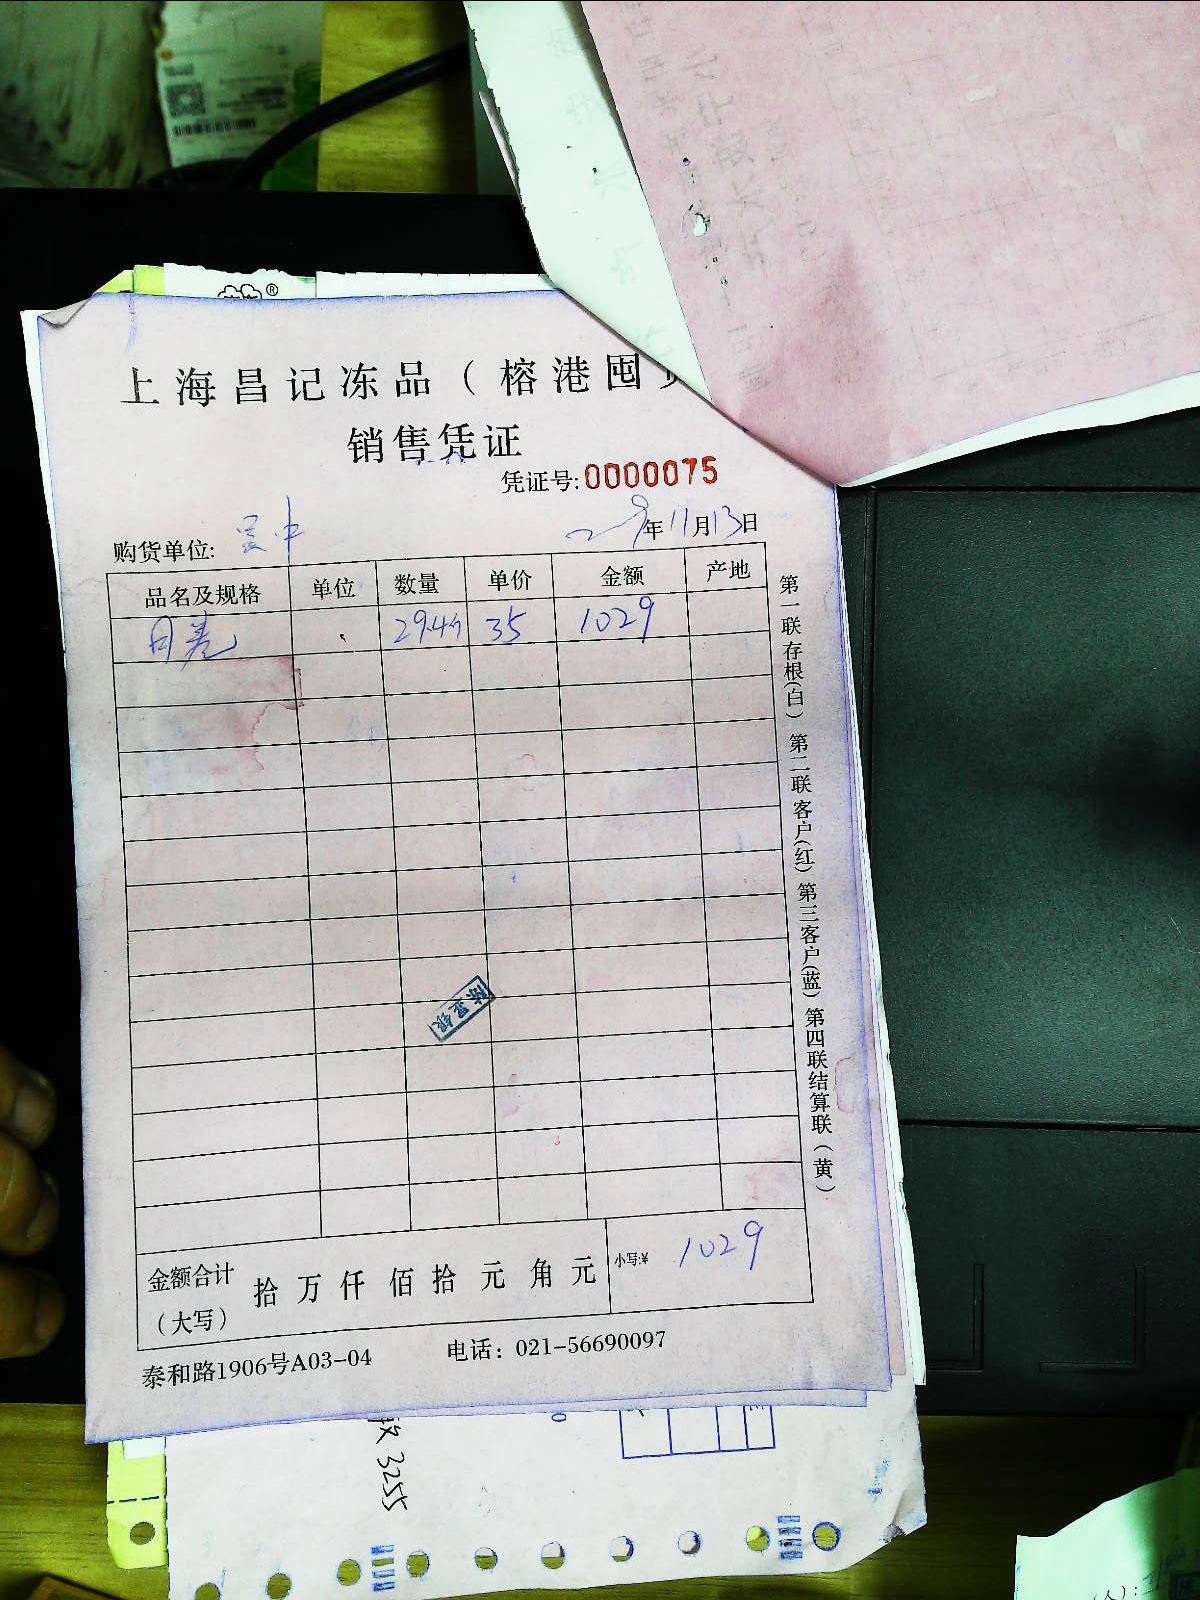 上海昌记冻品（榕港囤
销售凭证
凭证号:0000075
购货单位: 吴中 年11月13日
品名及规格 单位 数量 单价 金额 产地
29.4斤 35 1029
金额合计（大写） 拾 万 仟 佰 拾 元 角 元 小写:¥ 1029
泰和路1906号A03-04 电话：021-56690097
第一联存根(白) 第二联客户(红) 第三客户(蓝) 第四联结算联(黄)
3255